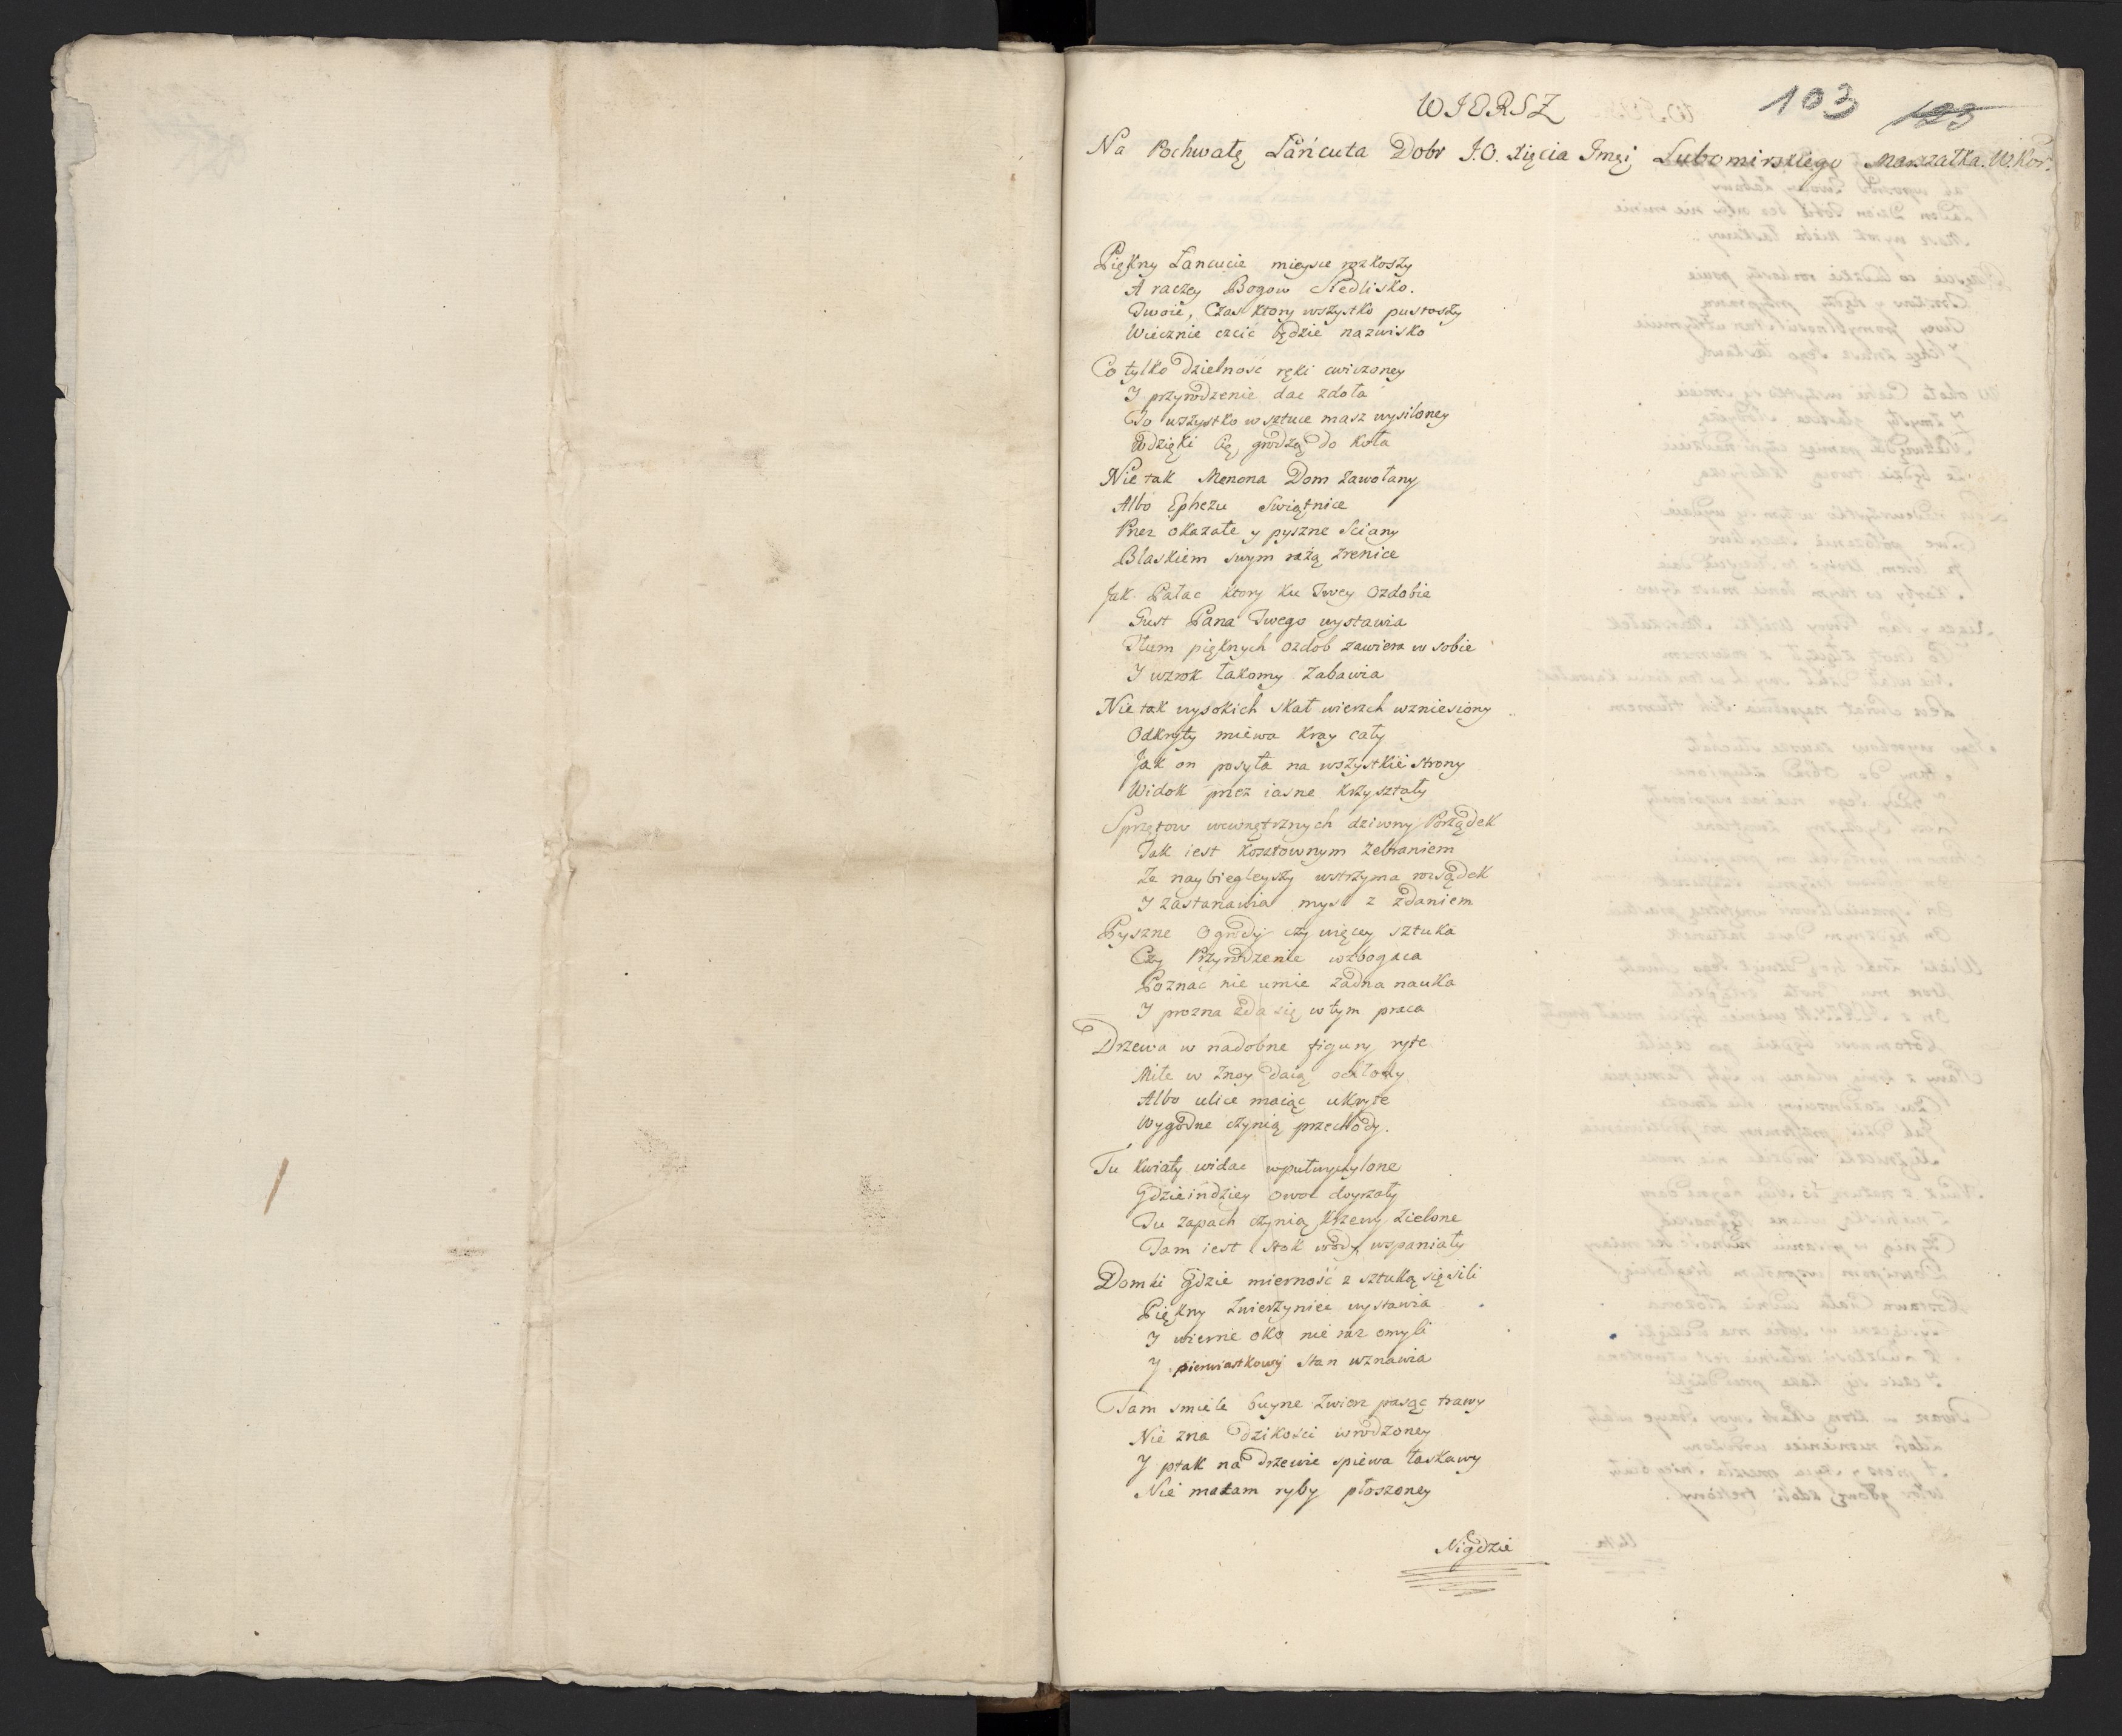 WIERSZ
103 123
Na Pochwałę Łańcuta Dobr J.O. Xięcia Jmci Lubomirskiego Marszałka. W. Kor.
Piękny Lancucie mieysce rozkoszy
A raczey Bogow Siedlisko.
Twoie, Czas ktory wszystko pustoszy
Wiecznie czcić będzie nazwisko
Co tylko dzielność ręki cwiczoney
I przyrodzenie dac zdoła
To wszystko w sztuce masz wysiloney
Wdzięki Cię grodzą do koła
Nie tak Menona Dom zawołany
Albo Ephezu Swiątnice
Przez okazałe y pyszne Sciany
Blaskiem swym rażą zrenice
Jak Pałac ktory ku Twey ozdobie
Gust Pana Twego wystawia
Tłum pięknych ozdob zawiera w sobie
I wzrok łakomy zabawia
Nie tak wysokich skał wierzch wzniesiony
Odkryty miewa Kray cały
Jak on posyła na wszystkie strony
Widok przez iasne krzyształy
Sprzętow wewnętrznych dziwny Porządek
Tak iest kosztownym zebraniem
Ze naybiegleyszy wstrzyma rozsądek
I zastanawia mysl z zdaniem
Pyszne Ogrody czy więcey sztuka
Czy Przyrodzenie wzbogaca
Poznac nie umie żadna nauka
I prozna zda się w tym praca
Drzewa w nadobne figury ryte
Miłe w znoy daią ochłody
Albo ulice maiąc ukryte
Wygodne czynią przechody.
Tu kwiaty widac wpułwychylone
Gdzieindziey owoc doyrzały
Tu zapach czynią Krzewy zielone
Tam iest stok wody wspaniały
Domki gdzie mierność z sztuką się sili
Piękny zwierzyniec wystawia
I wierne oko nie raz omyli
Y pierwiastkowy stan wznawia
Tam smiele buyne zwierz pasąc trawy
Nie zna dzikości wrodzoney
Y ptak na drzewie spiewa łaskawy
Nie masz tam ryby płoszoney
Nigdzie